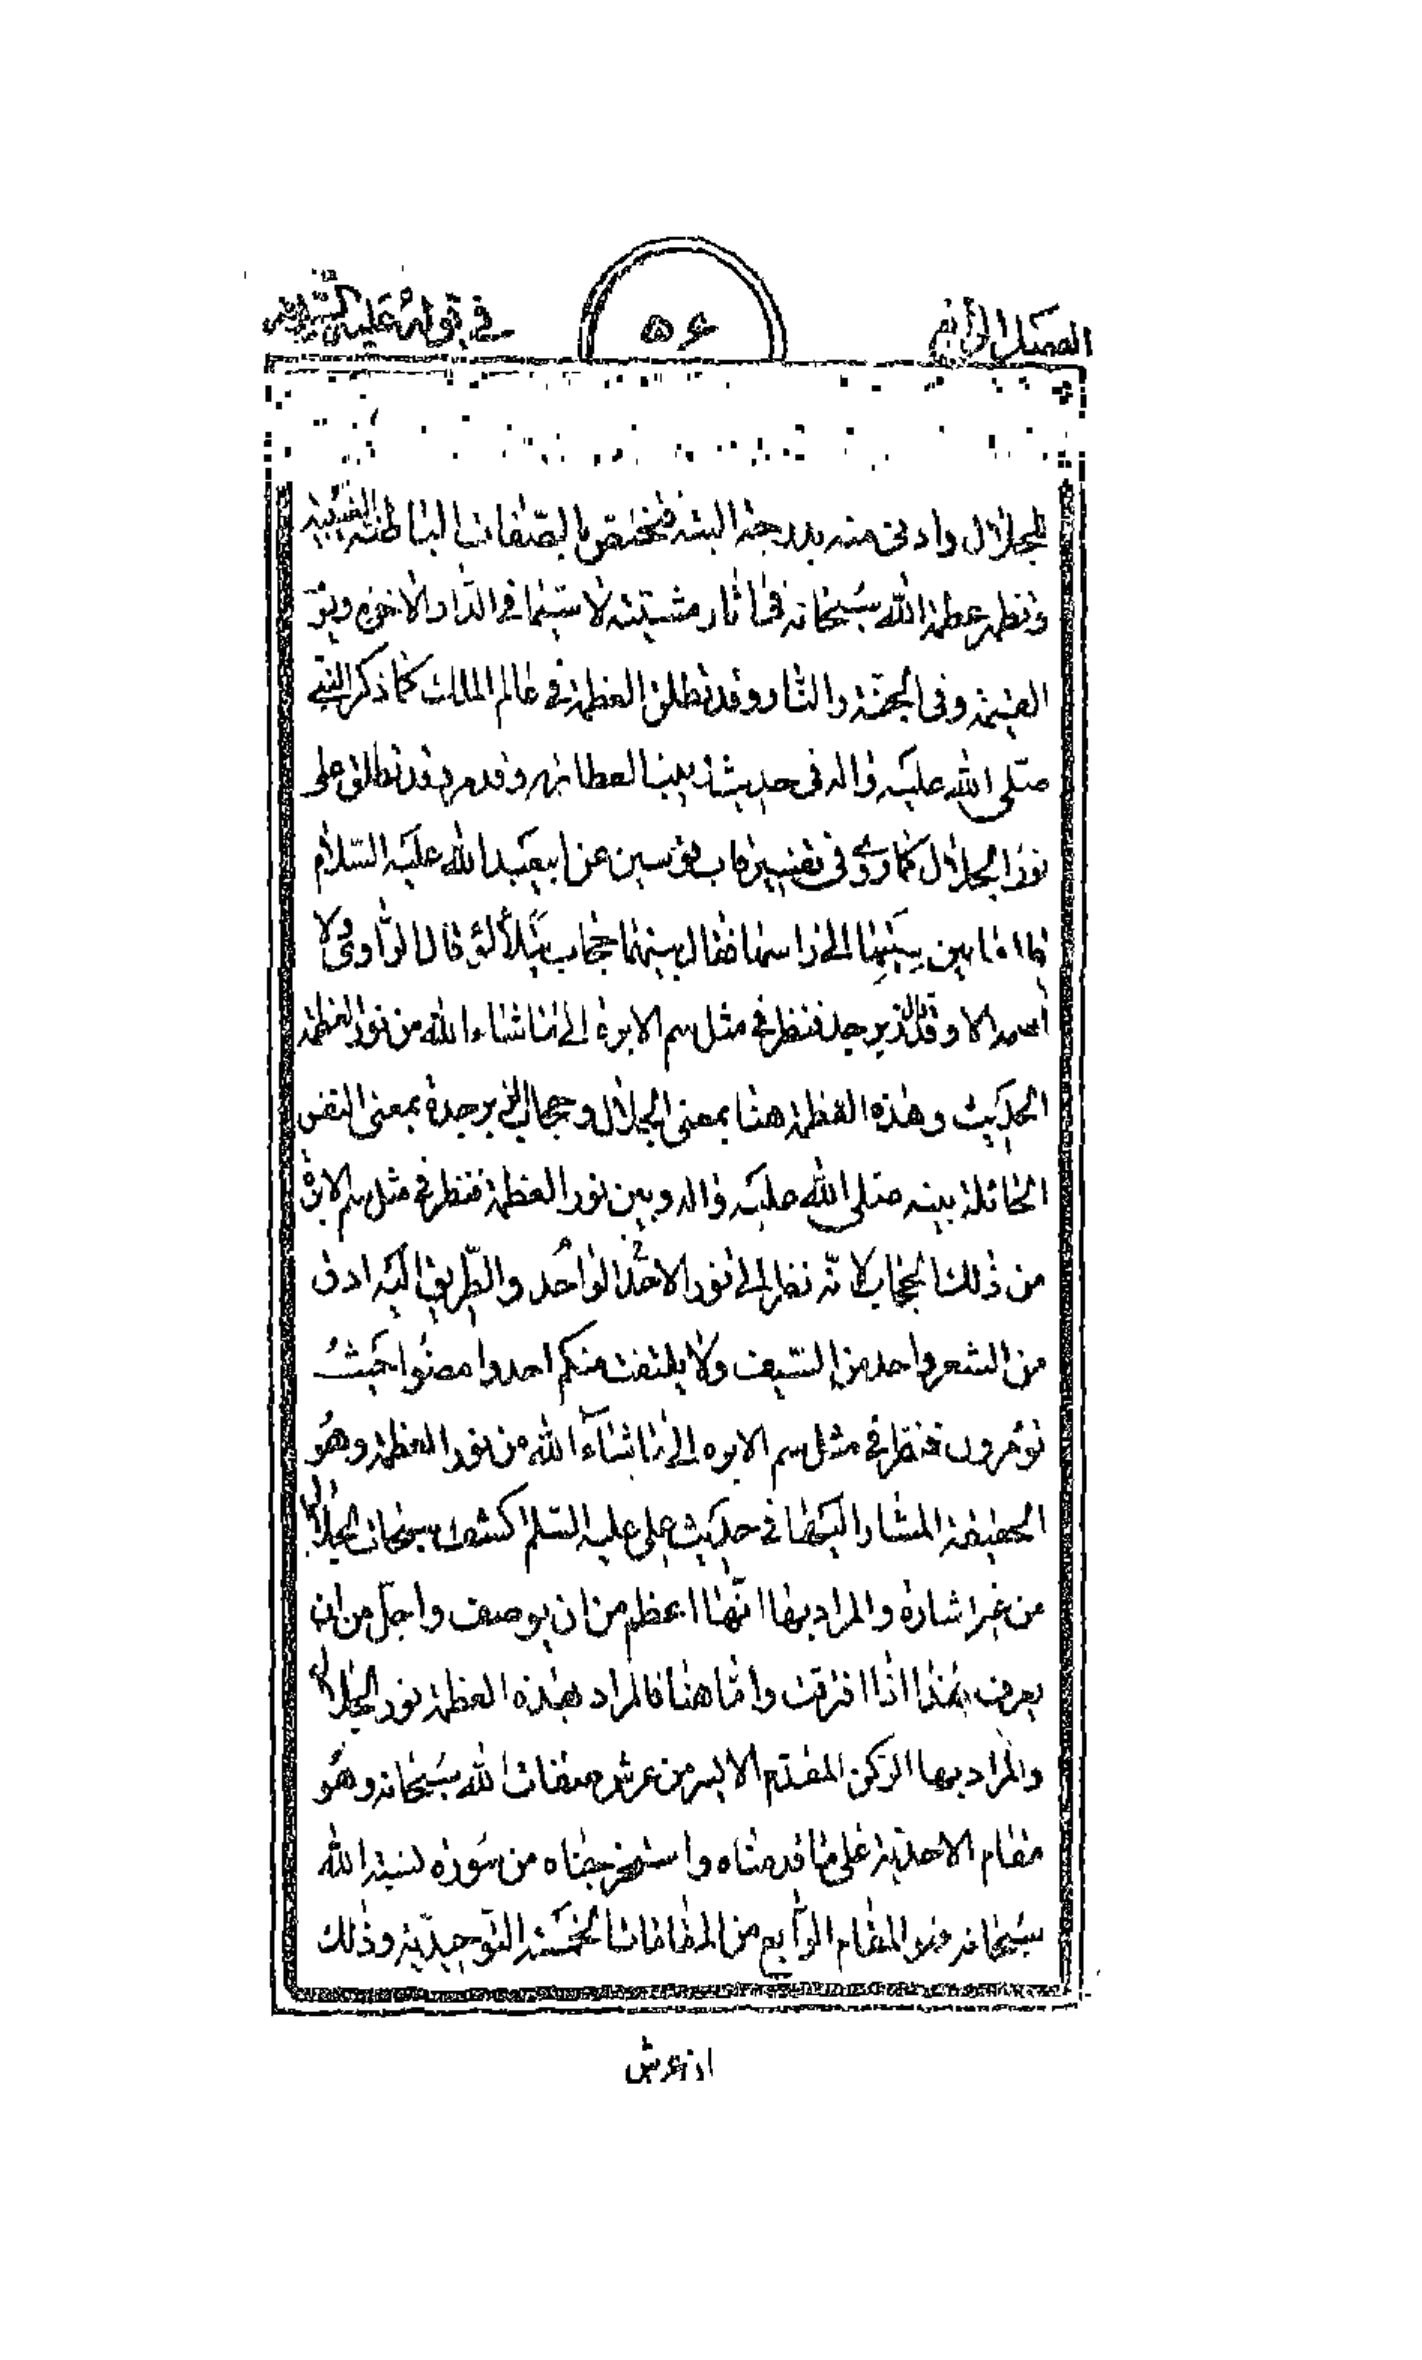 الفصل الرابع
٥٦
في قوله عليه السلام
للجلال وادنى منه بدرجة البتة فتختص بالصفات الباطنة الغيبية
وتظهر عظمة الله سبحانه في اثار مشيته لا سيما في الدار الاخرة ويوم
القيمة وفي الجنة والنار وقد تطلق العظمة في عالم الملك كما ذكر النبي
صلى الله عليه واله في حديث زينب العطارة وقد مر وقد تطلق على
نور الجلال كما روي في تفسير قاب قوسين عن ابيعبد الله عليه السلام
قال ما بين سيتها الى راسها فقال بينهما حجاب يتلألؤ قال الراوي ولا
أعلمه الا وقد قال زبرجد فنظر في مثل سم الابرة الى ما شاء الله من نور العظمة
الحديث وهذه العظمة هنا بمعنى الجلال وحجاب الزبرجدة بمعنى النفس
الحائلة بينه صلى الله عليه واله وبين نور العظمة فنظر في مثل سم الابرة
من ذلك الحجاب لانه نظر الى نور الاحد الواحد والطريق اليه ادق
من الشعر واحد من السيف ولا يلتفت منكم احد وامضوا حيث
تؤمرون فنظر في مثل سم الابره الى ما شاء الله من نور العظمة وهو
الحقيقة المشار اليها في حديث علي عليه السلم كشف سبحات الجلال
من غير اشارة والمراد بها انها اعظم من ان يوصف واجل من ان
يعرف بهذا اذا افترقت واما هنا فالمراد بهذه العظمة نور الجلال
والمراد بها الركن المقدم الايسر من عرش صفات الله سبحانه وهو
مقام الاحدية على ما قدمناه واستخرجناه من سورة نسبة الله
سبحانه وهو المقام الرابع من المقامات الخمسة التوحيدية وذلك
ان عرش